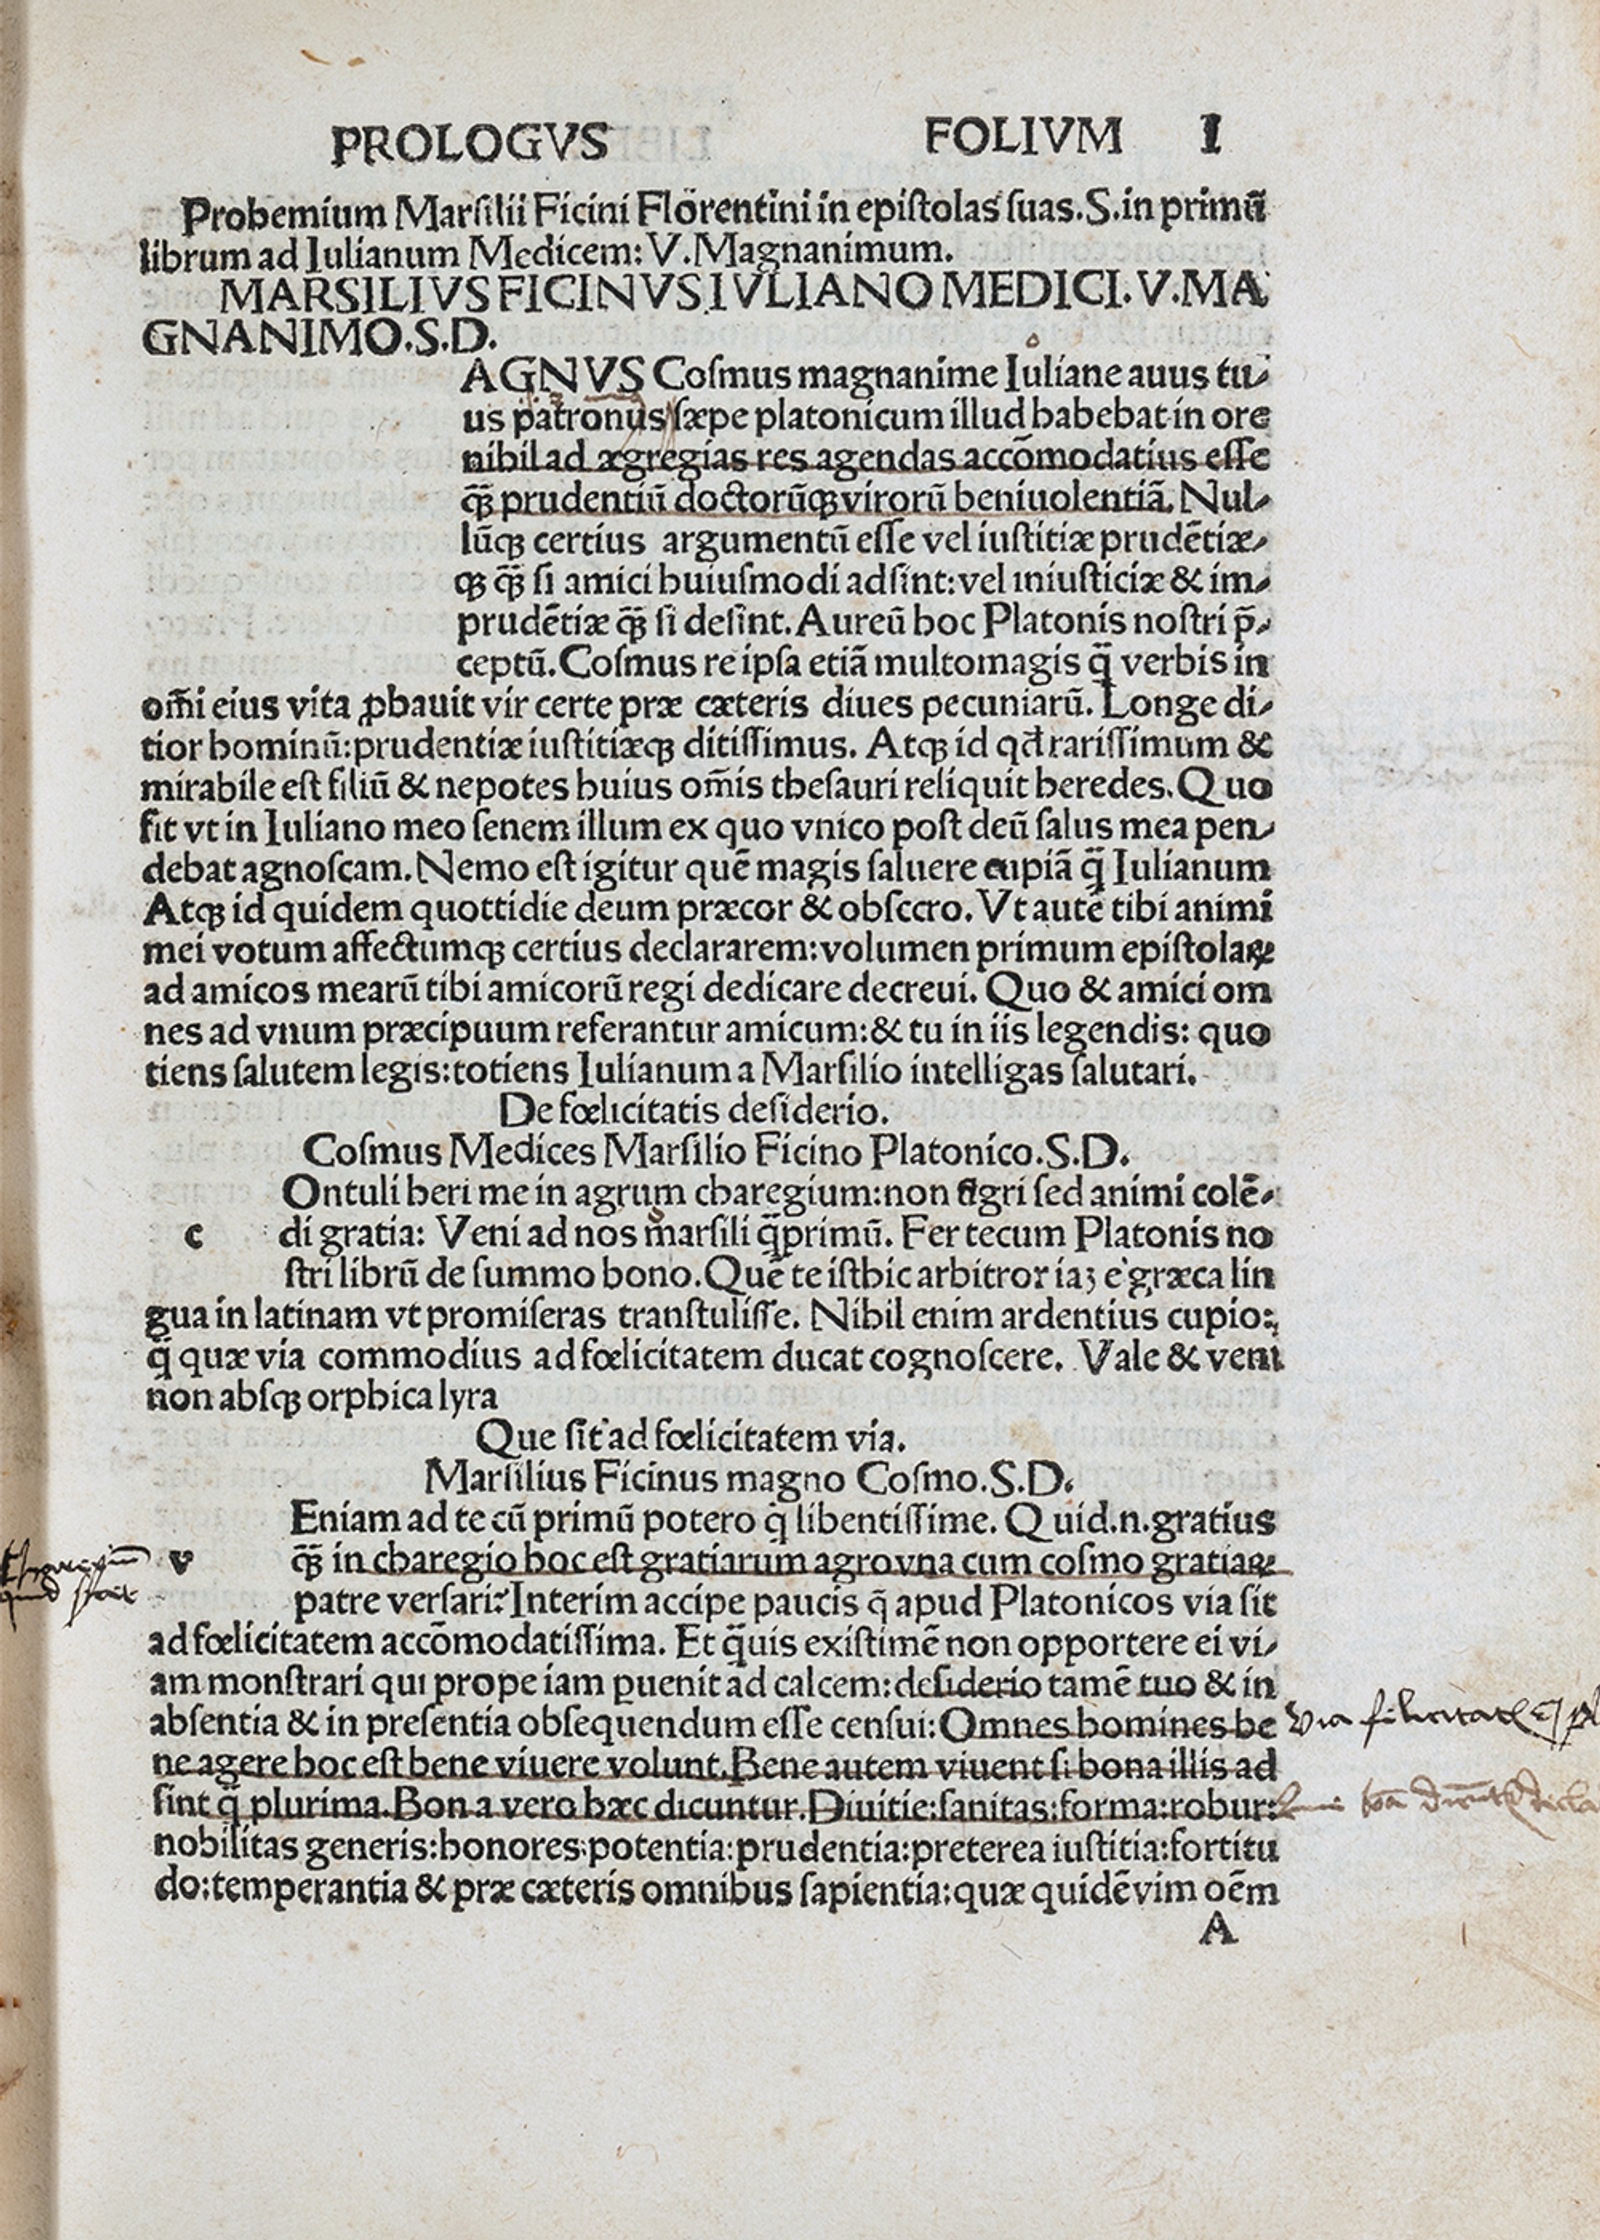 PROLOGVS FOLIVM I
Prohemium Marsilii Ficini Florentini in epistolas suas. S. in primū
librum ad Iulianum Medicem: V. Magnanimum.
MARSILIVS FICINVS IVLIANO MEDICI. V. MA
GNANIMO. S. D.
AGNVS Cosmus magnanime Iuliane auus tu-
us patronus sæpe platonicum illud habebat in ore
nihil ad ægregias res agendas accōmodatius esse
qꝫ̄ prudentiū doctorūqꝫ virorū beniuolentiā. Nul-
lūqꝫ certius argumentū esse vel iustitiæ prudētiæ-
qꝫ qꝫ̄ si amici huiusmodi adsint: vel iniusticiæ & im-
prudētiæ qꝫ̄ si desint. Aureū hoc Platonis nostri p̄-
ceptū. Cosmus re ipsa etiā multomagis q̄ verbis in
om̄i eius vita ꝓbauit vir certe præ cæteris diues pecuniarū. Longe di-
tior hominū: prudentiæ iustitiæqꝫ ditissimus. Atqꝫ id qđ rarissimum &
mirabile est filiū & nepotes huius om̄is thesauri reliquit heredes. Quo
fit vt in Iuliano meo senem illum ex quo vnico post deū salus mea pen-
debat agnoscam. Nemo est igitur quē magis saluere cupiā q̄ Iulianum
Atqꝫ id quidem quottidie deum præcor & obsecro. Vt autē tibi animi
mei votum affectumqꝫ certius declararem: volumen primum epistolaꝝ
ad amicos mearū tibi amicorū regi dedicare decreui. Quo & amici om
nes ad vnum præcipuum referantur amicum: & tu in iis legendis: quo
tiens salutem legis: totiens Iulianum a Marsilio intelligas salutari.
De fœlicitatis desiderio.
Cosmus Medices Marsilio Ficino Platonico. S. D.
Ontuli heri me in agrum charegium: non agri sed animi colē-
c di gratia: Veni ad nos marsili q̄primū. Fer tecum Platonis no
stri librū de summo bono. Quē te isthic arbitror iaꝫ e græca lin
gua in latinam vt promiseras transtulisse. Nihil enim ardentius cupio:
q̄ quæ via commodius ad fœlicitatem ducat cognoscere. Vale & veni
non absqꝫ orphica lyra
Que sit ad fœlicitatem via.
Marsilius Ficinus magno Cosmo. S. D.
Eniam ad te cū primū potero q̄ libentissime. Quid .n. gratius
v qꝫ̄ in charegio hoc est gratiarum agro vna cum cosmo gratiaꝝ
patre versari? Interim accipe paucis q̄ apud Platonicos via sit
ad fœlicitatem accōmodatissima. Et q̄uis existimē non opportere ei vi-
am monstrari qui prope iam ꝑuenit ad calcem: desiderio tamē tuo & in
absentia & in presentia obsequendum esse censui: Omnes homines be
ne agere hoc est bene viuere volunt. Bene autem viuent si bona illis ad
sint q̄ plurima. Bona vero hæc dicuntur. Diuitie: sanitas: forma: robur:
nobilitas generis: honores: potentia: prudentia: preterea iustitia: fortitu
do: temperantia & præ cæteris omnibus sapientia: quæ quidē vim oēm
A
quid
Via